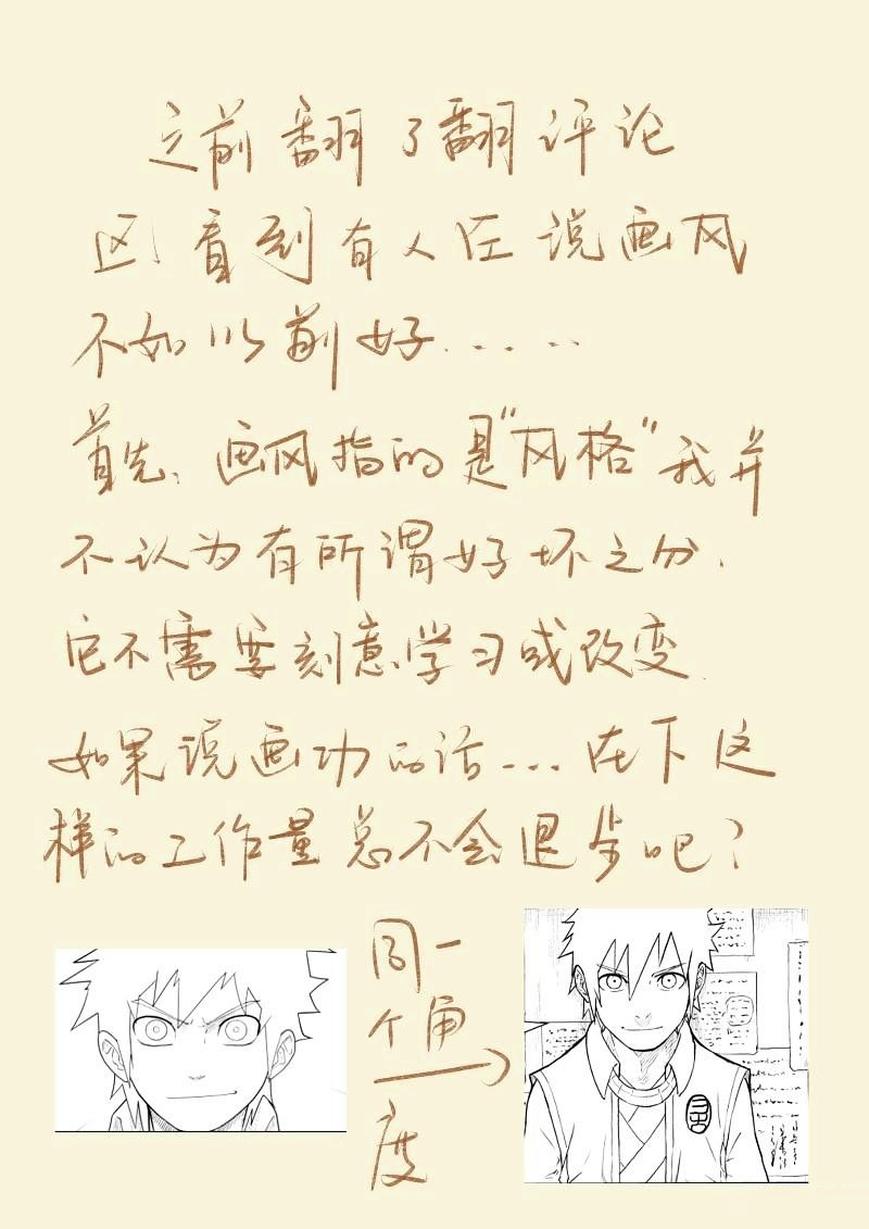 之前翻了翻评论
区,看到有人在说画风
不如以前好......
首先,画风指的是"风格"我并
不认为有所谓好坏之分.
它不需要刻意学习或改变.
如果说画功的话...在下这
样的工作量总不会退步吧?
同一
个角
度